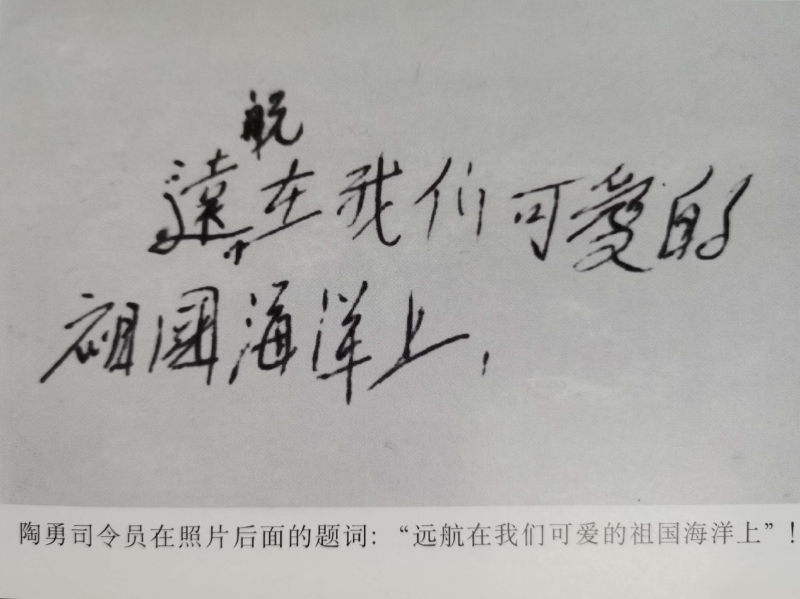 遠航在我们可爱的
祖國海洋上，
陶勇司令员在照片后面的题词：“远航在我们可爱的祖国海洋上”！